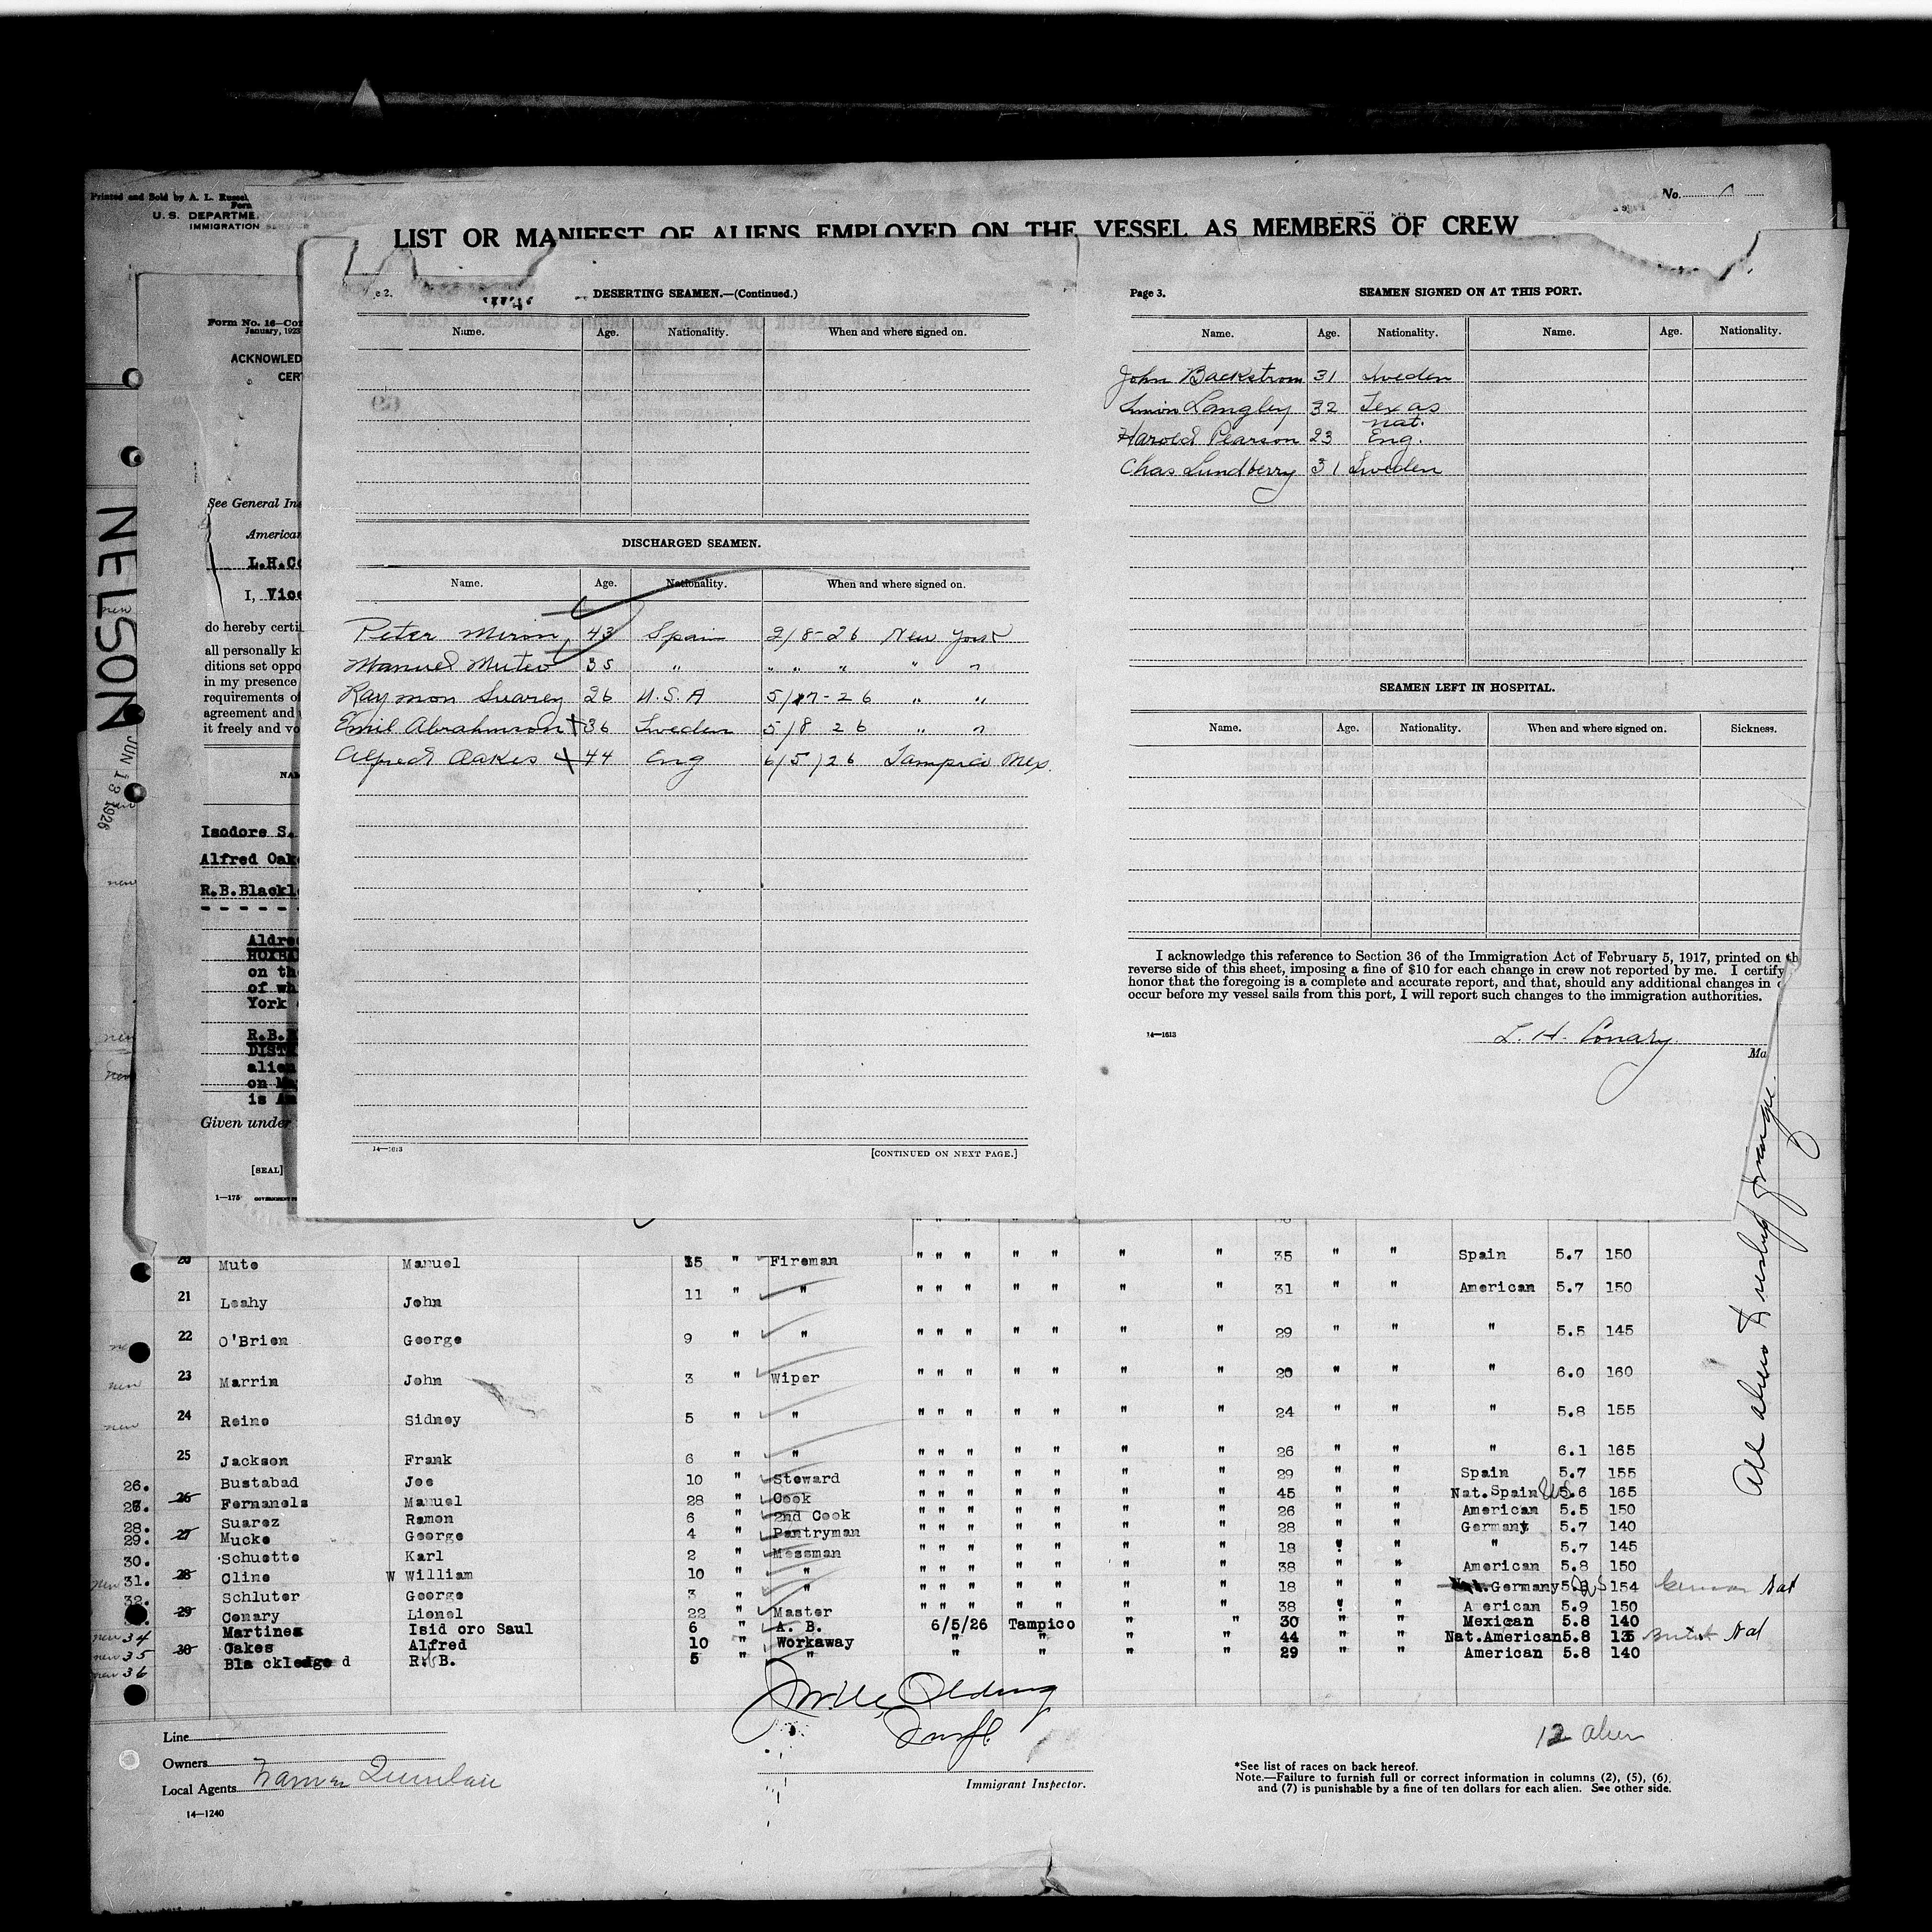 Printed and Sold by A. L. Russel
Form
U. S. DEPARTME
IMMIGRATION SERVICE
No.
LIST OR MANIFEST OF ALIENS EMPLOYED ON THE VESSEL AS MEMBERS OF CREW
NELSON
JUN 13 1926
Form No. 16—Con
January, 1923
ACKNOWLED
CERT
See General Ins
American
L.H.Co
I, Vice
do hereby certi
all personally k
ditions set oppo
in my presence
requirements of
agreement and
it freely and vo
NAM
Isodore S.
Alfred Oak
R.B.Blackl
Aldre
HOXBA
on th
of wh
York
R.B.
DIST
alien
on Ma
is Am
Given under
[SEAL]
1—175
e 2.
DESERTING SEAMEN.—(Continued.)
Name. Age. Nationality. When and where signed on.
DISCHARGED SEAMEN.
Name. Age. Nationality. When and where signed on.
Peter Miron 43 Spain 2/8-26 New York
Manuel Muteo 35 " " " " " "
Raymon Suarez 26 U.S.A 5/17-26 " "
Emil Abrahmson 36 Sweden 5/8 26 " "
Alfred Oakes 44 Eng 6/5/26 Tampico Mex.
14—1613
[CONTINUED ON NEXT PAGE.]
Page 3.
SEAMEN SIGNED ON AT THIS PORT.
Name. Age. Nationality. Name. Age. Nationality.
John Backstrom 31 Sweden
Simon Langley 32 Texas
nat.
Harold Pearson 23 Eng.
Chas Lundberry 31 Sweden
SEAMEN LEFT IN HOSPITAL.
Name. Age. Nationality. When and where signed on. Sickness.
I acknowledge this reference to Section 36 of the Immigration Act of February 5, 1917, printed on th
reverse side of this sheet, imposing a fine of $10 for each change in crew not reported by me. I certify
honor that the foregoing is a complete and accurate report, and that, should any additional changes in c
occur before my vessel sails from this port, I will report such changes to the immigration authorities.
14—1613
L. H. Conary
Ma
20 Mute Manuel 15 " Fireman " " " " " " " 35 " " Spain 5.7 150
21 Leahy John 11 " " " " " " " " " 31 " " American 5.7 150
22 O'Brien George 9 " " " " " " " " " 29 " " " 5.5 145
new 23 Marrin John 3 " Wiper " " " " " " " 20 " " " 6.0 160
new 24 Reino Sidney 5 " " " " " " " " " 24 " " " 5.8 155
25 Jackson Frank 6 " " " " " " " " " 26 " " " 6.1 165
26. Bustabad Joe 10 " Steward " " " " " " " 29 " " Spain 5.7 155
27. 26 Fernanels Manuel 28 " Cook " " " " " " " 45 " " Nat.Spain 5.6 165
28. Suarez Ramon 6 " 2nd Cook " " " " " " " 26 " " American 5.5 150
29. 27 Mucke George 4 " Pantryman " " " " " " " 28 " " Germany 5.7 140
30. Schuette Karl 2 " Messman " " " " " " " 18 " " " 5.7 145
new 31. 28 Cline W William 10 " " " " " " " " " 38 " " American 5.8 150
32. Schluter George 3 " " " " " " " " " 18 " " Germany 5.8 154 German Nat
29 Conary Lionel 22 " Master " " " " " " " 38 " " American 5.9 150
new 34 Martinez Isid oro Saul 6 " A. B. 6/5/26 Tampico " " 30 " " Mexican 5.8 140
new 35 30 Oakes Alfred 10 " Workaway " " " " 44 " " Nat.American 5.8 135 British Nat
new 36 Bla ckledge d R. B. 5 " " " " " " 29 " " American 5.8 140
Line
Owners
Local Agents
14—1240
Immigrant Inspector.
12 alien
*See list of races on back hereof.
Note.—Failure to furnish full or correct information in columns (2), (5), (6),
and (7) is punishable by a fine of ten dollars for each alien. See other side.